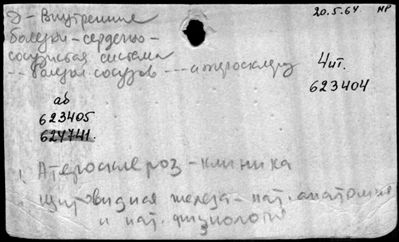 Э - Внутренние 20.5.64. НР
болезни - сердечно-
сосудистая система
-- болезни сосудов --- атеросклероз
4 ит.
623404
аб
623405
624741.
1. Атеросклероз - клиника
1. Щитовидная железа - пат. анатомия
и пат. физиология